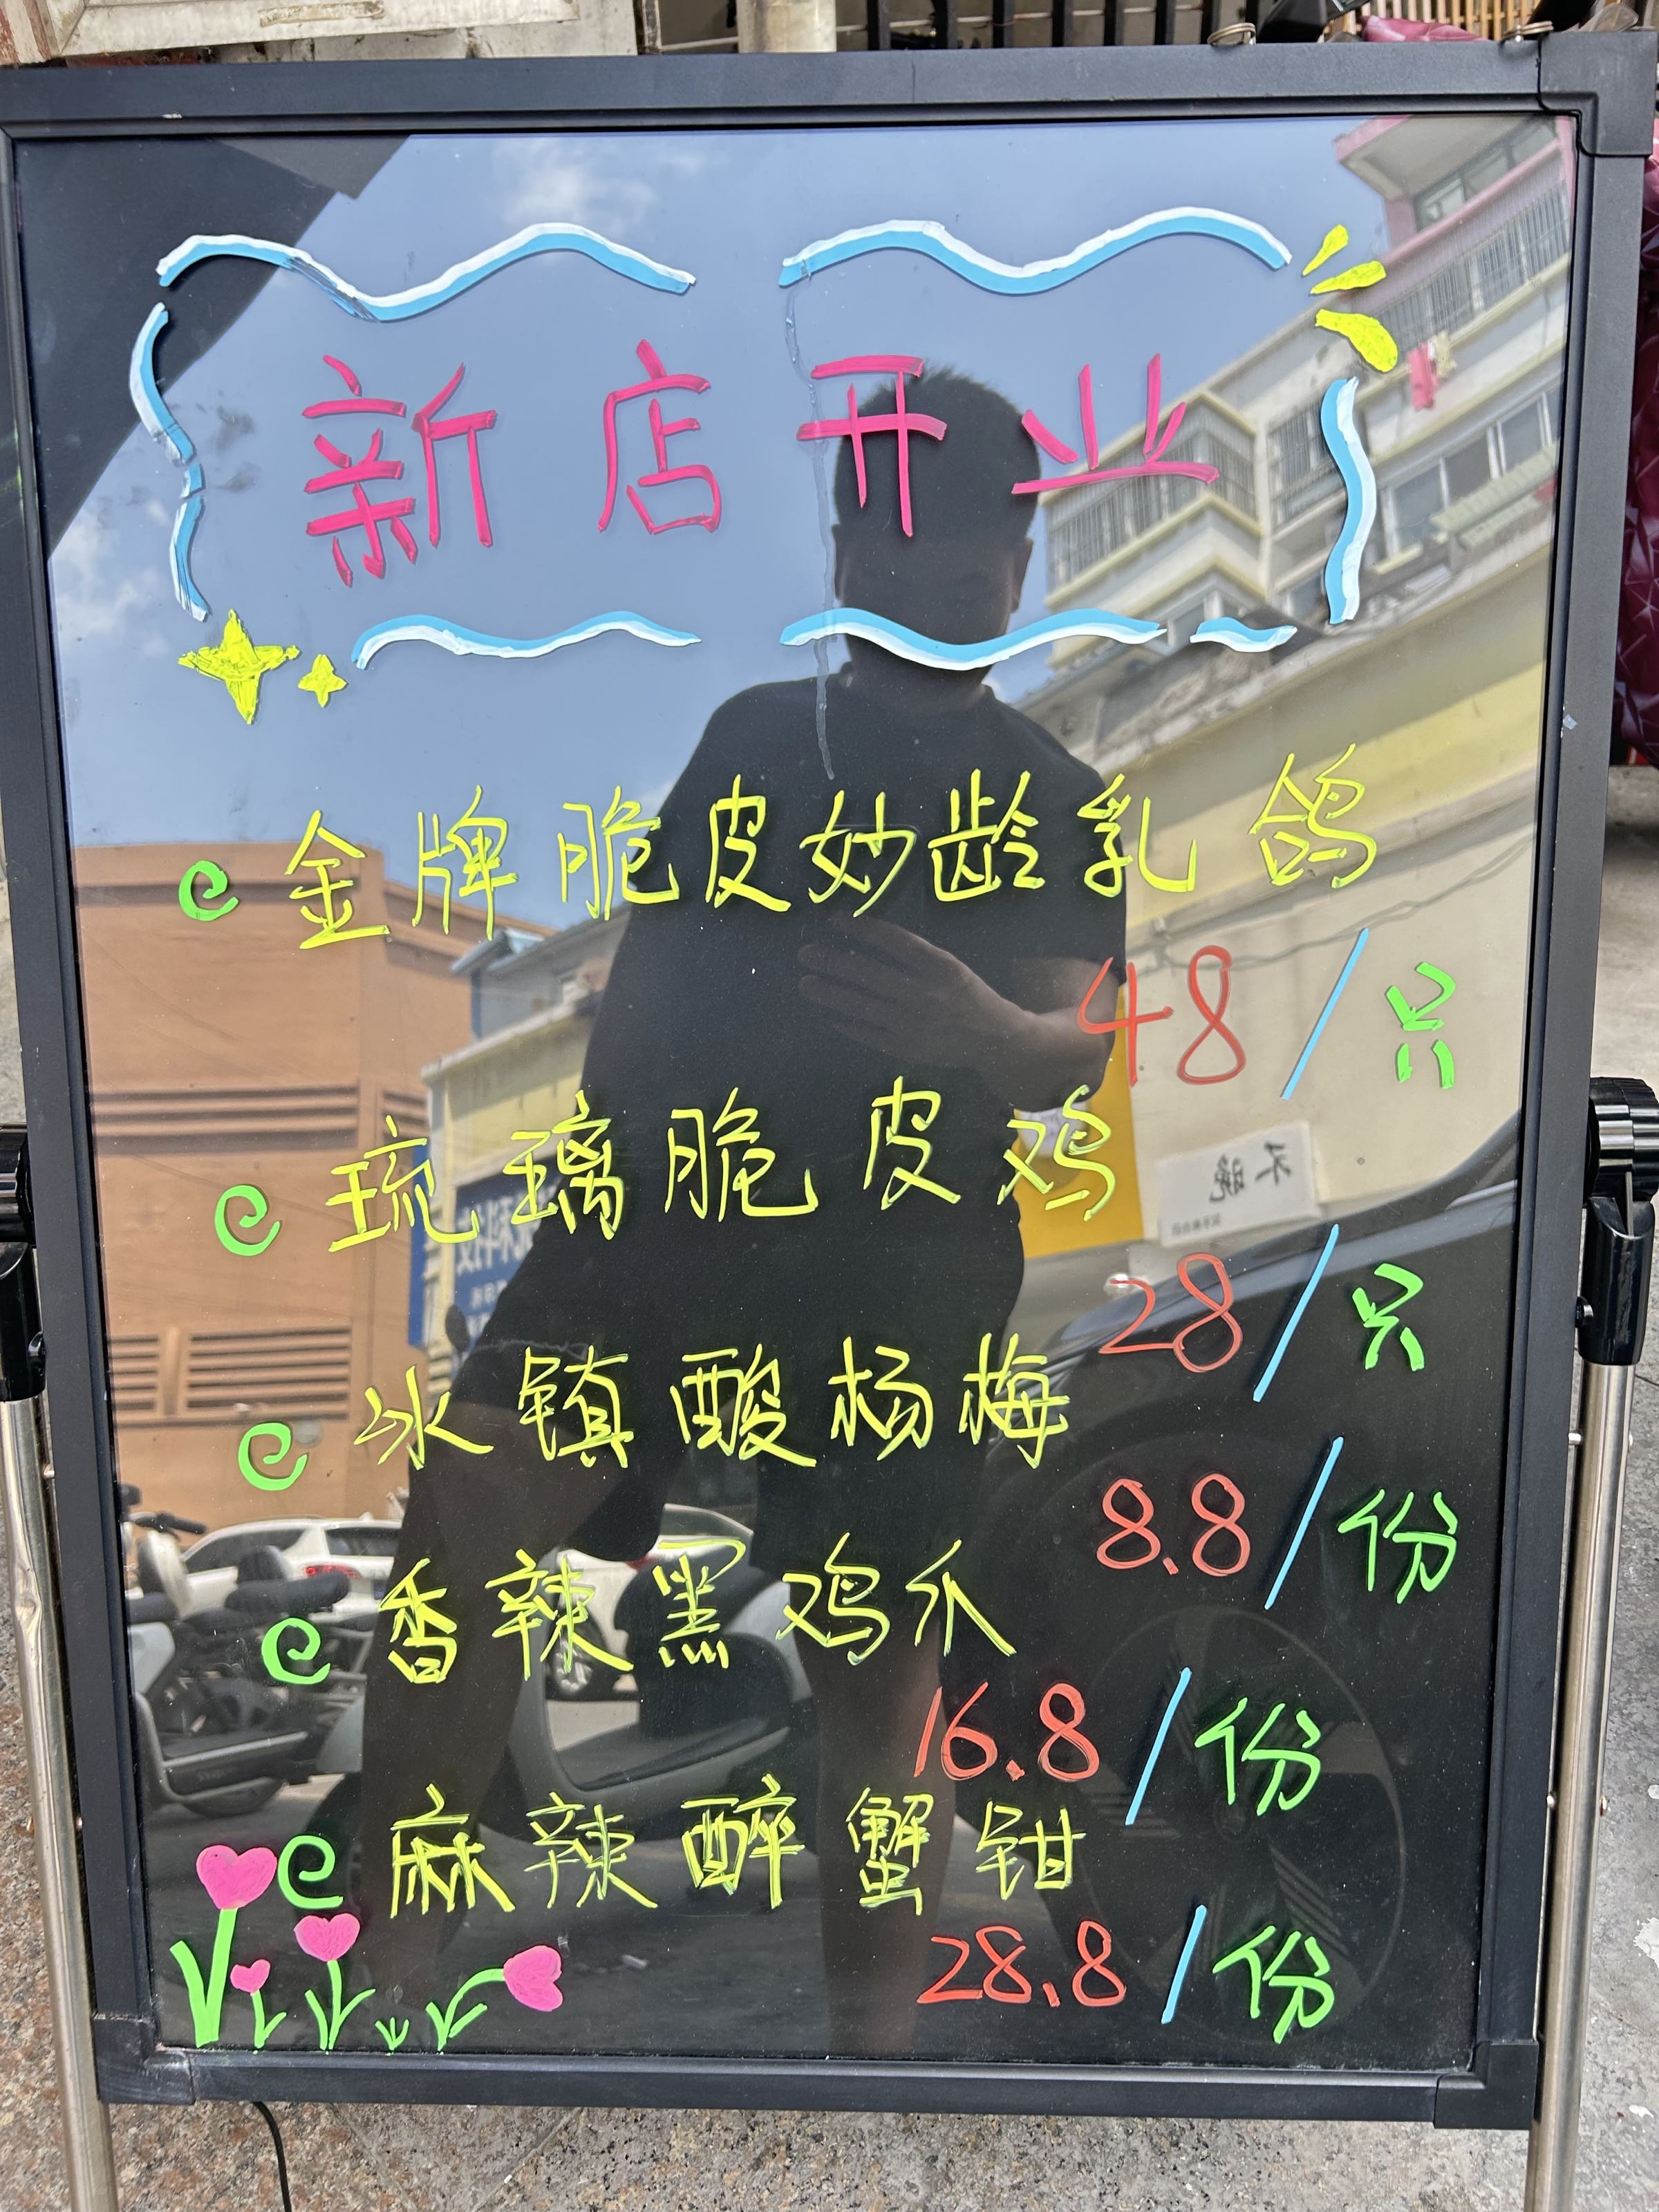 新店开业
金牌脆皮妙龄乳鸽
48/只
琉璃脆皮鸡
28/只
冰镇酸杨梅
8.8/份
香辣黑鸡爪
16.8/份
麻辣醉蟹钳
28.8/份